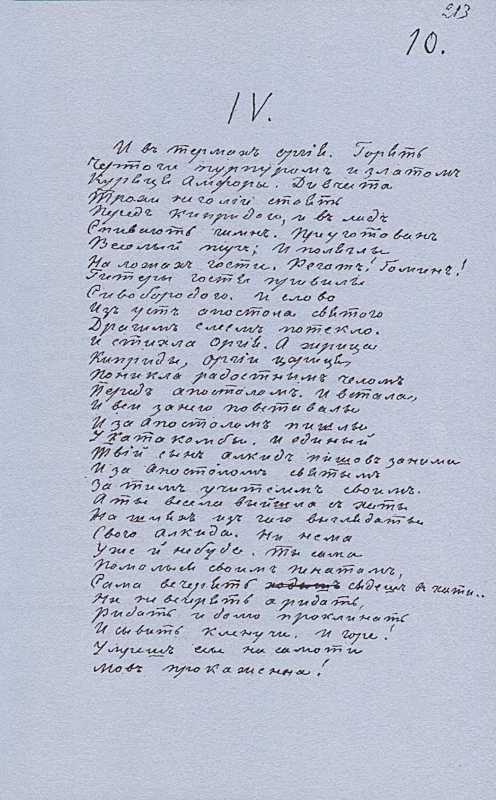 213
10.
IV.
И въ термахъ оргія. Горять
Чертоги пурпуромъ и златомъ
Курятця Амфоры. Дивчата
Трохи не голіі стоять
Передъ Кипридою, и въ ладъ
Спивають гимнъ. Приуготованъ
Веселый пиръ; И поляглы
На ложахъ гости. Реготъ! Гоминъ!
Гетеры гостя привелы
Сивобородого. И слово
Изъ устъ апостола святого
Драгимъ елеемъ потекло.
И стихла Оргія. А жрица
Киприды, оргіи царица,
Поникла радостнымъ челомъ
Передъ апостоломъ. И встала,
И вси за нею повставалы
И за Апостоломъ пишлы
У катакомбы. И единый
Твій сынъ Алкидъ пишовъ за ними
И за Апостоломъ святымъ
За тимъ учителемъ своимъ.
А ты весела вийшла съ хаты
На шляхъ изъ гаю выглядаты
Свого Алкида. Ни нема
Уже й не буде. Ты сама
Помолыся своимъ пенатамъ,
Сама вечерять сядешъ в хати..
Ни не вечерять а ридать,
Ридать и долю проклинать
И сывить кленучи. И горе!
Умрешъ еси на самоти
Мовъ прокаженна!